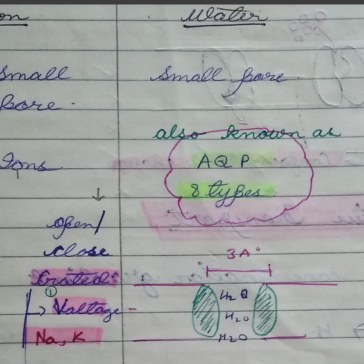 on
Water
small
pore.
Small pore
also known as
AQP
8 types.
Ions
↓
open/
close
Gated:
① → Voltage -
Na, K
3A°
H₂O
H₂O
H₂O